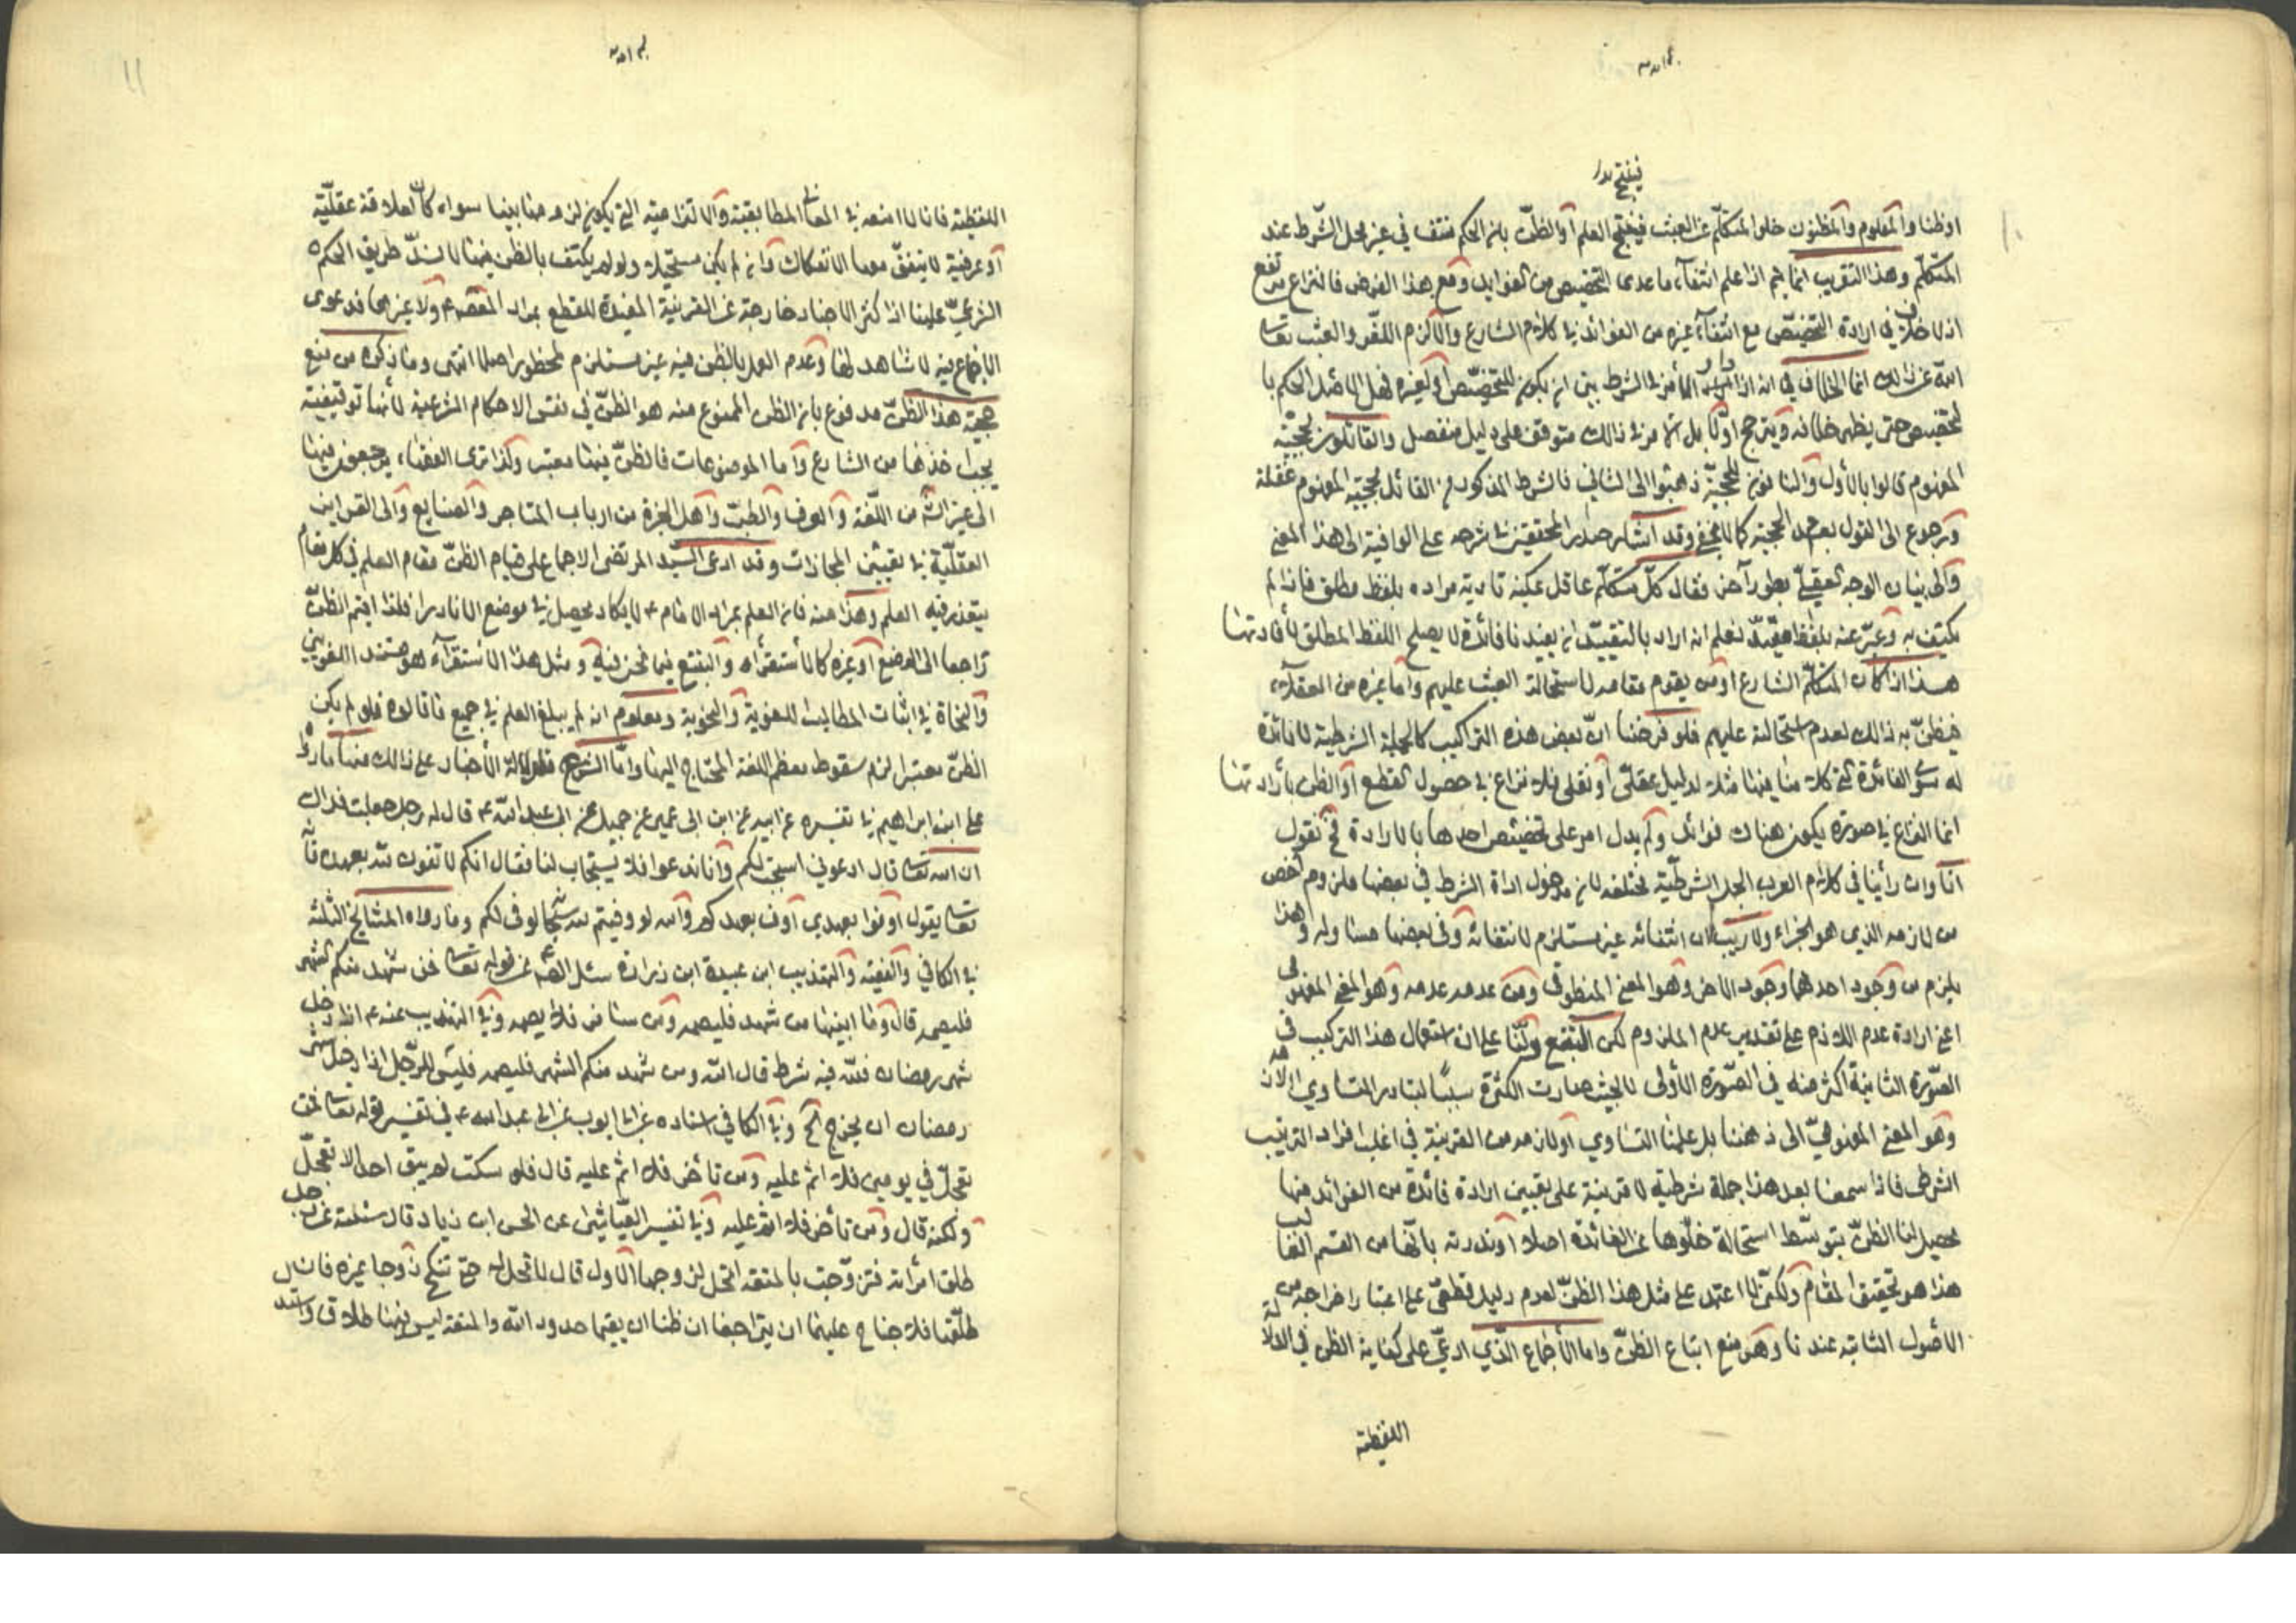 فينتج
اوظنا والمعلوم والمظنون خلو المتكلم عن العبث فينتج العلم او الظن بان الحكم منتف في غير محل الشرط عند
المتكلم وهذا التقريب انما يتم اذا علم انتفاء ماعدى التخصيص من الفوايد ومع هذا الفرض فالنزاع مرتفع
اذ لا خلاف في ارادة التخصيص مع انتفاء غيره من الفوائد في كلام الشارع والا لزم اللغو والعبث تعالى
الله عن ذلك انما الخلاف في انه اذا الامر في الشرط بين ان يكون للتخصيص او لغيره فهل الاصل الحكم با
لتخصيص حتى يظهر خلافه ويترجح اولا بل الامر في ذلك متوقف على دليل منفصل والقائلون بحجية
المفهوم قالوا بالاول والنافون للحجية ذهبوا الى الثاني فالشرط المذكور من القائل بحجية المفهوم غفلة
ورجوع الى القول بعدم الحجية كما لا يخفى وقد اشار صدر المحققين في شرحه على الوافية الى هذا المعنى
والى بيان الوجه العقلي بطور آخر فقال كل متكلم عاقل يمكنه تادية مراده بلفظ مطلق فاذا لم
يكتف به وعبر عنه بلفظ مقيد نعلم انه اراد بالتقييد ان يفيد نا فائدة لا يصلح اللفظ المطلق لأفادتها
هذا اذا كان المتكلم الشارع او من يقوم مقامه لاستحالة العبث عليهم واما غيره من العقلاء
فيظن به ذلك لعدم استحالته عليهم فلو فرضنا ان بعض هذه التراكيب كالجملة الشرطية لا فائدة
له سوى الفائدة التي كلامنا فيها مثلا لدليل عقلي او نقلي فلا نزاع في حصول القطع او الظن بأرادتها
انما النزاع في صورة يكون هناك فوائد ولم يدل امر على تخصيص احدها بالارادة فح نقول
انا وان رأينا في كلام العرب الجمل الشرطية مختلفة لان مدخول اداة الشرط في بعضها ملزوم اخص
من لازمه الذي هو الجزاء ولا ريب ان انتفائه غير مستلزم لانتفائه وفي بعضها مساو له وهذا
يلزم من وجود احدهما وجود الاخر وهو المعنى المنطوقي ومن عدمه عدمه وهو المعنى المفهومي
اعني ارادة عدم اللازم على تقدير عدم الملزوم لكن التتبع دلنا على ان استعمال هذا التركيب في
الصورة الثانية اكثر منه في الصورة الأولى لا بحيث صارت الكثرة سببا لتبادر التساوي
وهو المعنى المفهومي الى ذهننا بل علمنا التساوي او لازمه من القرينة في اغلب افراد الترتيب
الشرطي فاذا سمعنا بعد هذا جملة شرطية لا قرينة على تعيين ارادة فائدة من الفوائد منها
يحصل لنا الظن بتوسط استحالة خلوها عن الفائدة اصلا او ندرته بانها من القسم الغالب
هذا هو تحقيق المقام ولكني لا اعتمد على مثل هذا الظن لعدم دليل قطعي على اعتبار اخراجه من
الأصول الثابتة عندنا وهو منع اتباع الظن واما الأجماع الذي ادعي على كفاية الظن في الدلالة
اللفظية
١١
اللفظية فانا لا امنعه في المعاني المطابقية والالتزامية التي يكون لزومها بينا سواء كان لعلاقة عقلية
او عرفية لا يتفق معها الانفكاك وان لم يكن مستحيلا ولو لم يكتف بالظن فيها لانسد طريق الحكم
الشرعي علينا اذ اكثر الاخبار خارجة عن القرينة المفيدة للقطع بمراد المعصوم ولا غيرها فدعوى
الاجماع فيه لا شاهد لها وعدم العمل بالظن فيه غير مستلزم لمحظور اصلا انتهى وما ذكره من منع
حجية هذا الظن مدفوع بان الظن الممنوع منه هو الظن في نفس الاحكام الشرعية لأنها توقيفية
يجب اخذها من الشارع واما الموضوعات فالظن فيها معتبر وكذا ترى الفقهاء يرجعون فيها
الى غير الشرع من اللغة والعرف والطب واهل الخبرة من ارباب المتاجر والصنايع والى القراين
العقلية في تعيين المجازات وقد ادعى السيد المرتضى الاجماع على قيام الظن مقام العلم في كل مقام
يتعذر فيه العلم وهذا منه فان العلم بمراد الامام ع لا يكاد يحصل في موضع الا نادرا فلذا اقيم الظن
راجعا الى الوضع او غيره كالاستقراء والتتبع فيما نحن فيه ومثل هذا الاستقراء هو مستند اللغويين
والنحاة في اثبات المطالب اللغوية والنحوية ومعلوم انه لم يبلغ العلم في جميع ما قالوه فلو لم يكن
الظن معتبرا لزم سقوط معظم اللغة المحتاج اليها واما الشرع فلدلالة الأخبار على ذلك منها مارواه
على ابن ابراهيم في تفسيره عن ابيه عن ابن ابي عمير عن جميل عن ابى عبد الله ع قال له رجل جعلت فداك
ان الله تعالى قال ادعوني استجب لكم وانا ندعوا فلا يستجاب لنا فقال انكم لا تفون لله بعهده فانه
تعالى يقول اوفوا بعهدي اوف بعهدكم والله لو وفيتم لله سبحانه لوفى لكم وما رواه المشايخ الثلثة
في الكافي والفقيه والتهذيب ابن عبيدة ابن زرارة سئل الصادق ع عن قوله تعالى فمن شهد منكم الشهر
فليصمه قال وما ابينها من شهد فليصمه ومن سافر فلا يصمه وفي التهذيب عنه ع اذا دخل
شهر رمضان فلله فيه شرط قال الله ومن شهد منكم الشهر فليصمه فليس للرجل اذا دخل شهر
رمضان ان يخرج الخ وفي الكافي اسناده عن ابى ايوب عن ابى عبد الله ع في تفسير قوله تعالى فمن
تعجل في يومين فلا اثم عليه ومن تأخر فلا اثم عليه قال فلو سكت لم يبق احد الا تعجل
ولكنه قال ومن تأخر فلا اثم عليه وفي تفسير العياشي عن الحسن ابن زياد قال سئلته عن رجل
طلق امرأته فتزوجت بالمتعة اتحل لزوجها الأول قال لا تحل له حتى تنكح زوجا غيره فان
طلقها فلا جناح عليهما ان يتراجعا ان ظنا ان يقيما حدود الله والمتعة ليس فيها طلاق